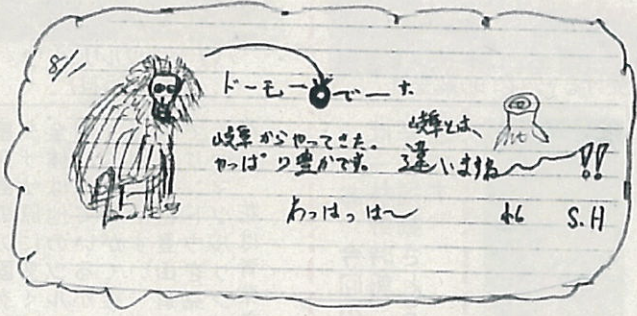 8/1
ドーモーでーす
岐阜からやってきた。
やっぱり豊かです。
岐阜とは、
違いますね〜!!
わっはっは〜
S.H